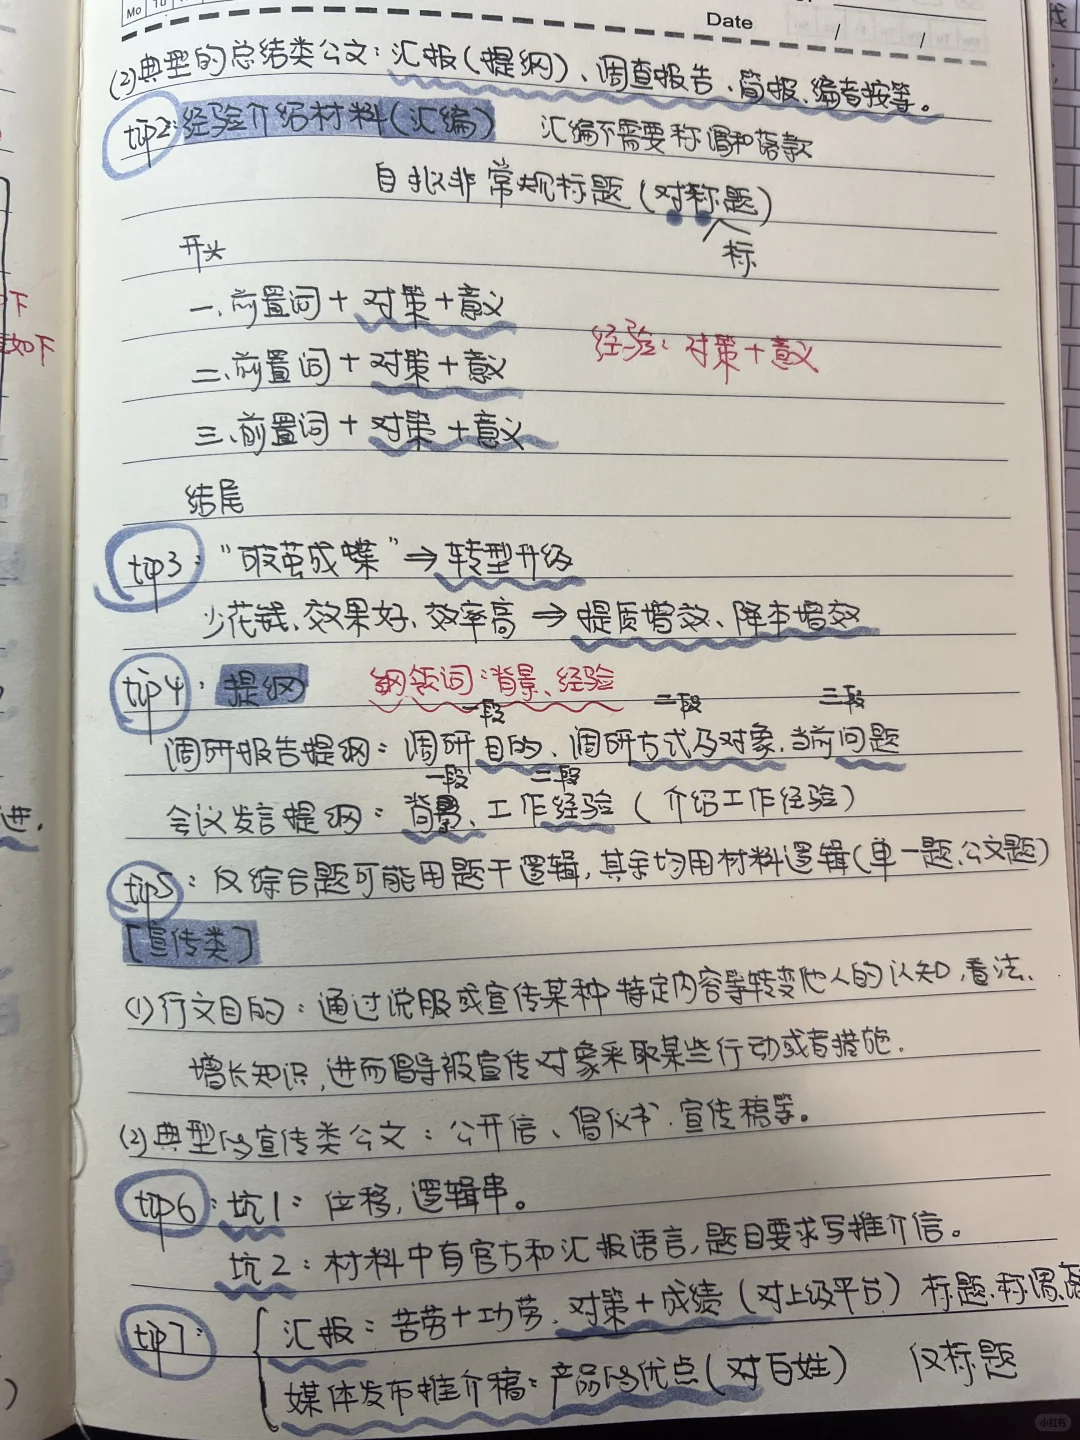 Mo Tu
Date / /
(2)典型的总结类公文：汇报(提纲)、调查报告、简报、编者按等。
tip2：经验介绍材料(汇编) 汇编不需要称谓和落款
自拟非常规标题(对称题)
标
开头
一、前置词+对策+意义
经验：对策+意义
二、前置词+对策+意义
三、前置词+对策+意义
结尾
tip3："破茧成蝶"⇒转型升级
少花钱、效果好、效率高⇒提质增效、降本增效
tip4：提纲 纲领词：背景、经验
一段 二段 三段
调研报告提纲：调研目的、调研方式及对象、当前问题
一段 二段
会议发言提纲：背景、工作经验(介绍工作经验)
tip5：仅综合题可能用题干逻辑，其余均用材料逻辑(单一题、公文题)
[宣传类]
(1)行文目的：通过说服或宣传某种特定内容等转变他人的认知、看法、
增长知识，进而倡导被宣传对象采取某些行动或者措施.
(2)典型的宣传类公文：公开信、倡议书、宣传稿等。
tip6：坑1：位移，逻辑串。
坑2：材料中有官方和汇报语言，题目要求写推介信。
tip7：汇报：苦劳+功劳、对策+成绩(对上级平台) 标题、称谓、
媒体发布推介稿：产品的优点(对百姓) 仅标题
下
如下
进，
小红书